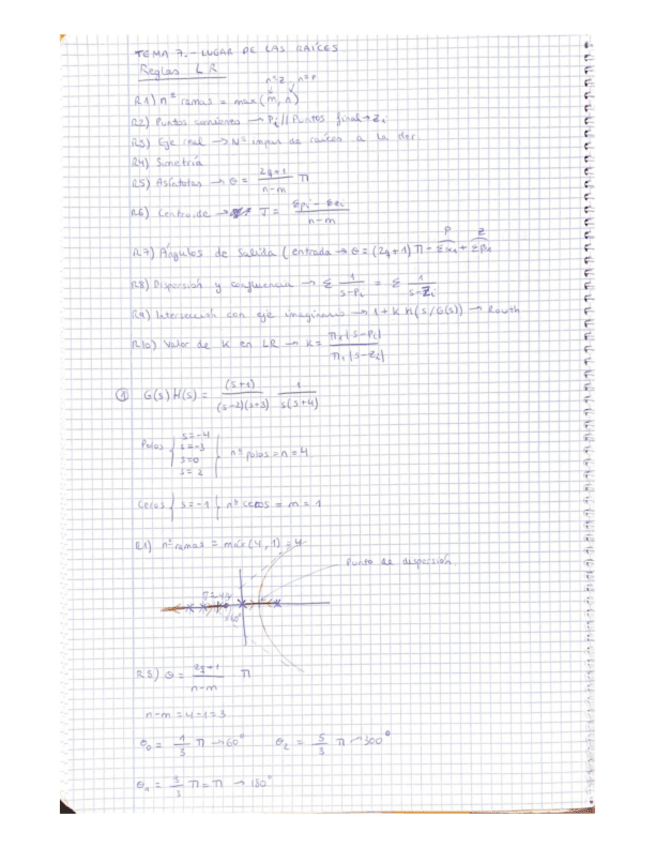 TEMA 7.- LUGAR DE LAS RAÍCES
Reglas LR
nº Z nº P
R1) nº ramas = max(m, n)
R2) Puntos comienzo → Pi // Puntos final → Zi
R3) Eje real → Nº impar de raíces a la der
R4) Simetría
R5) Asíntotas → θ = (2q+1)/(n-m) π
R6) Centroide → σ = (Σpi - Σzi)/(n-m)
R7) Ángulos de Salida (entrada → θ = (2q+1)π - Σα1 + Σβ1
P Z
R8) Dispersión y confluencia → Σ 1/(s-Pi) = Σ 1/(s-Zi)
R9) Intersección con eje imaginario → 1 + K H(s/G(s)) → Routh
R10) Valor de K en LR → K = π1|s-Pi| / π1|s-Zi|
① G(s)H(s) = (s+1)/((s-2)(s+3)) 1/(s(s+4))
Polos { s=-4
s=-3
s=0
s=2
nº polos = n = 4
Ceros { s=-1 } nº ceros = m = 1
R1) nº ramas = máx(4,1) = 4
Punto de dispersión
60°
R5) θ = (2q+1)/(n-m) π
n-m = 4-1 = 3
θ0 = 1/3 π → 60° θ2 = 5/3 π → 300°
θ1 = 3/3 π = π → 180°